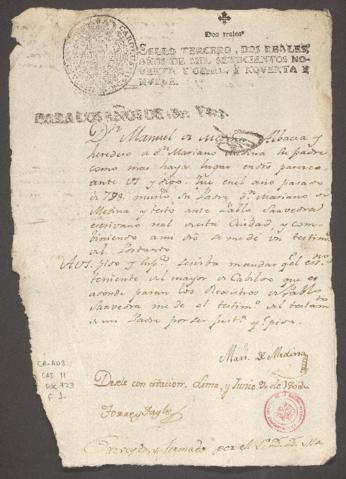 Dos reales
SELLO TERCERO, DOS REALES,
AÑOS DE MIL SETECIENTOS NO-
VENTA Y OCHO, Y NOVENTA Y
NUEVE.
PARA LOS AÑOS DE
Dn. Manuel de Medina Albacea y
heredero de dn. Mariano Medina su padre
como mas haya lugar en dro paresco
ante V. y digo: Que en el año pasado
de 798 murió su Padre dn. Mariano de
Medina y testó ante Pablo Saavedra
escrivano real de esta Ciudad, y com-
biniendo a mi dro se me dé un testim
A V. pido y sup se sirva mandar qe el
teniente del mayor de Cabildo que es
adonde paran los Registros de Pablo
Saavedra me dé el testimo del testam
de mi Padre por ser just
Man. de Medina
Desele con citacion. Lima, y Junio de 180
Torre Tagle
Proveyó, y firmado por el S. D. D.